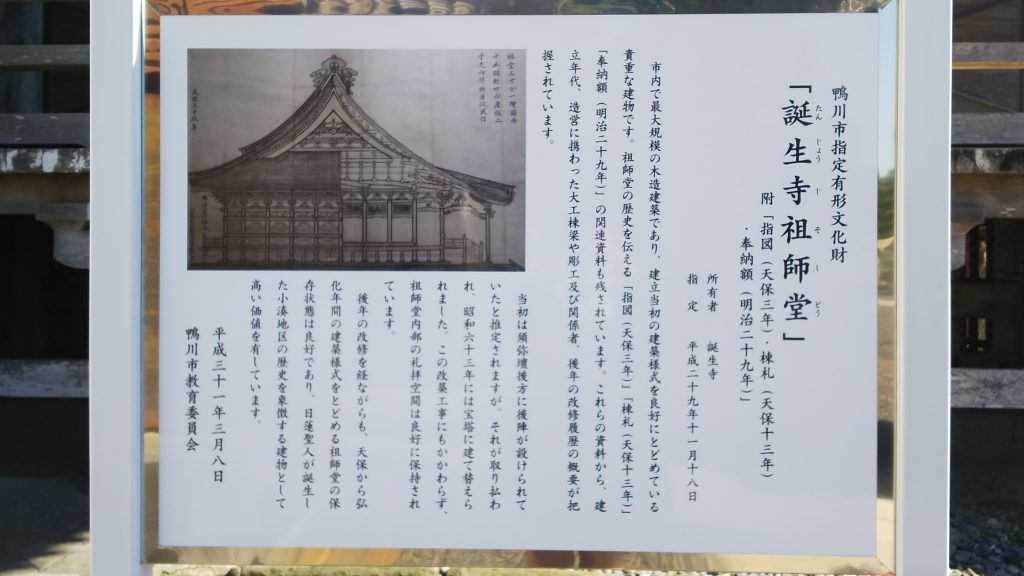 鴨川市指定有形文化財
「誕生寺祖師堂」
たんじょうじそしどう
附「指図（天保三年）・棟札（天保十三年）
・奉納額（明治二十九年）」
所有者　誕生寺
指定　平成二十九年十一月十八日
市内で最大規模の木造建築であり、建立当初の建築様式を良好にとどめている
貴重な建物です。祖師堂の歴史を伝える「指図（天保三年）」「棟札（天保十三年）」
「奉納額（明治二十九年）」の関連資料も残されています。これらの資料から、建
立年代、造営に携わった大工棟梁や彫工及び関係者、後年の改修履歴の概要が把
握されています。
当初は須弥壇後方に後陣が設けられて
いたと推定されますが、それが取り払わ
れ、昭和六十三年には宝塔に建て替えら
れました。この改築工事にもかかわらず、
祖師堂内部の礼拝空間は良好に保持され
ています。
後年の改修を経ながらも、天保から弘
化年間の建築様式をとどめる祖師堂の保
存状態は良好であり、日蓮聖人が誕生し
た小湊地区の歴史を象徴する建物として
高い価値を有しています。
平成三十一年三月八日
鴨川市教育委員会